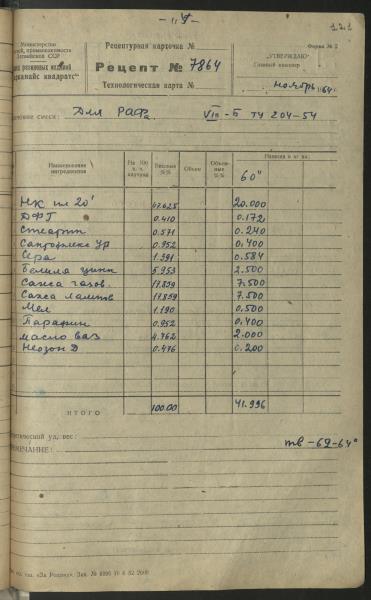 Министерство
Рецептурная карточка №
Форма № 2
промышленности
Латвийской ССР
"УТВЕРЖДАЮ"
Рецепт № 7864
Главный инженер
резиновых изделий
квадратс"
Технологическая карта №
ноябрь 64
смеси: Для РАФа VIII-Б ТУ 204-54
Наименование ингредиентов На 100 в. ч. каучука Весовые %% Объем Объемные %% Навеска в кг на:
60"
НК пл 20' 47.625 20.000
ДФГ 0.410 0.172
Стеарин 0.571 0.240
Сантофлекс 0.952 0.400
Сера 1.391 0.584
Белила цинк 5.953 2.500
Сажа газов. 17.859 7.500
Сажа лампов 17.859 7.500
Мел 1.190 0.500
Парафин 0.952 0.400
масло ваз 4.762 2.000
Неозон Д 0.476 0.200
ИТОГО 100.00 41.996
уд. вес:
тв -62-64°
ПРИМЕЧАНИЕ:
тип. „За Родину". Зак. №